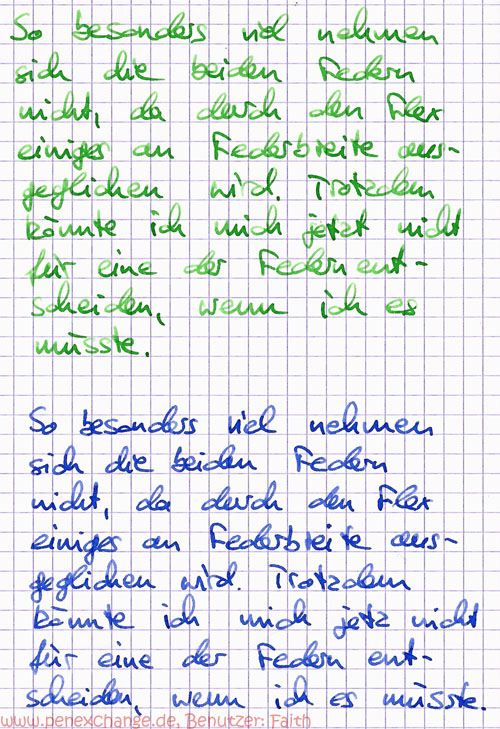 So besonders viel nehmen
sich die beiden Federn
nicht, da durch den Flex
einiges an Federbreite aus-
geglichen wird. Trotzdem
könnte ich mich jetzt nicht
für eine der Federn ent-
scheiden, wenn ich es
müsste.
So besonders viel nehmen
sich die beiden Federn
nicht, da durch den Flex
einiges an Federbreite aus-
geglichen wird. Trotzdem
könnte ich mich jetz nicht
für eine der Federn ent-
scheiden, wenn ich es müsste.
www.penexchange.de, Benutzer: Faith